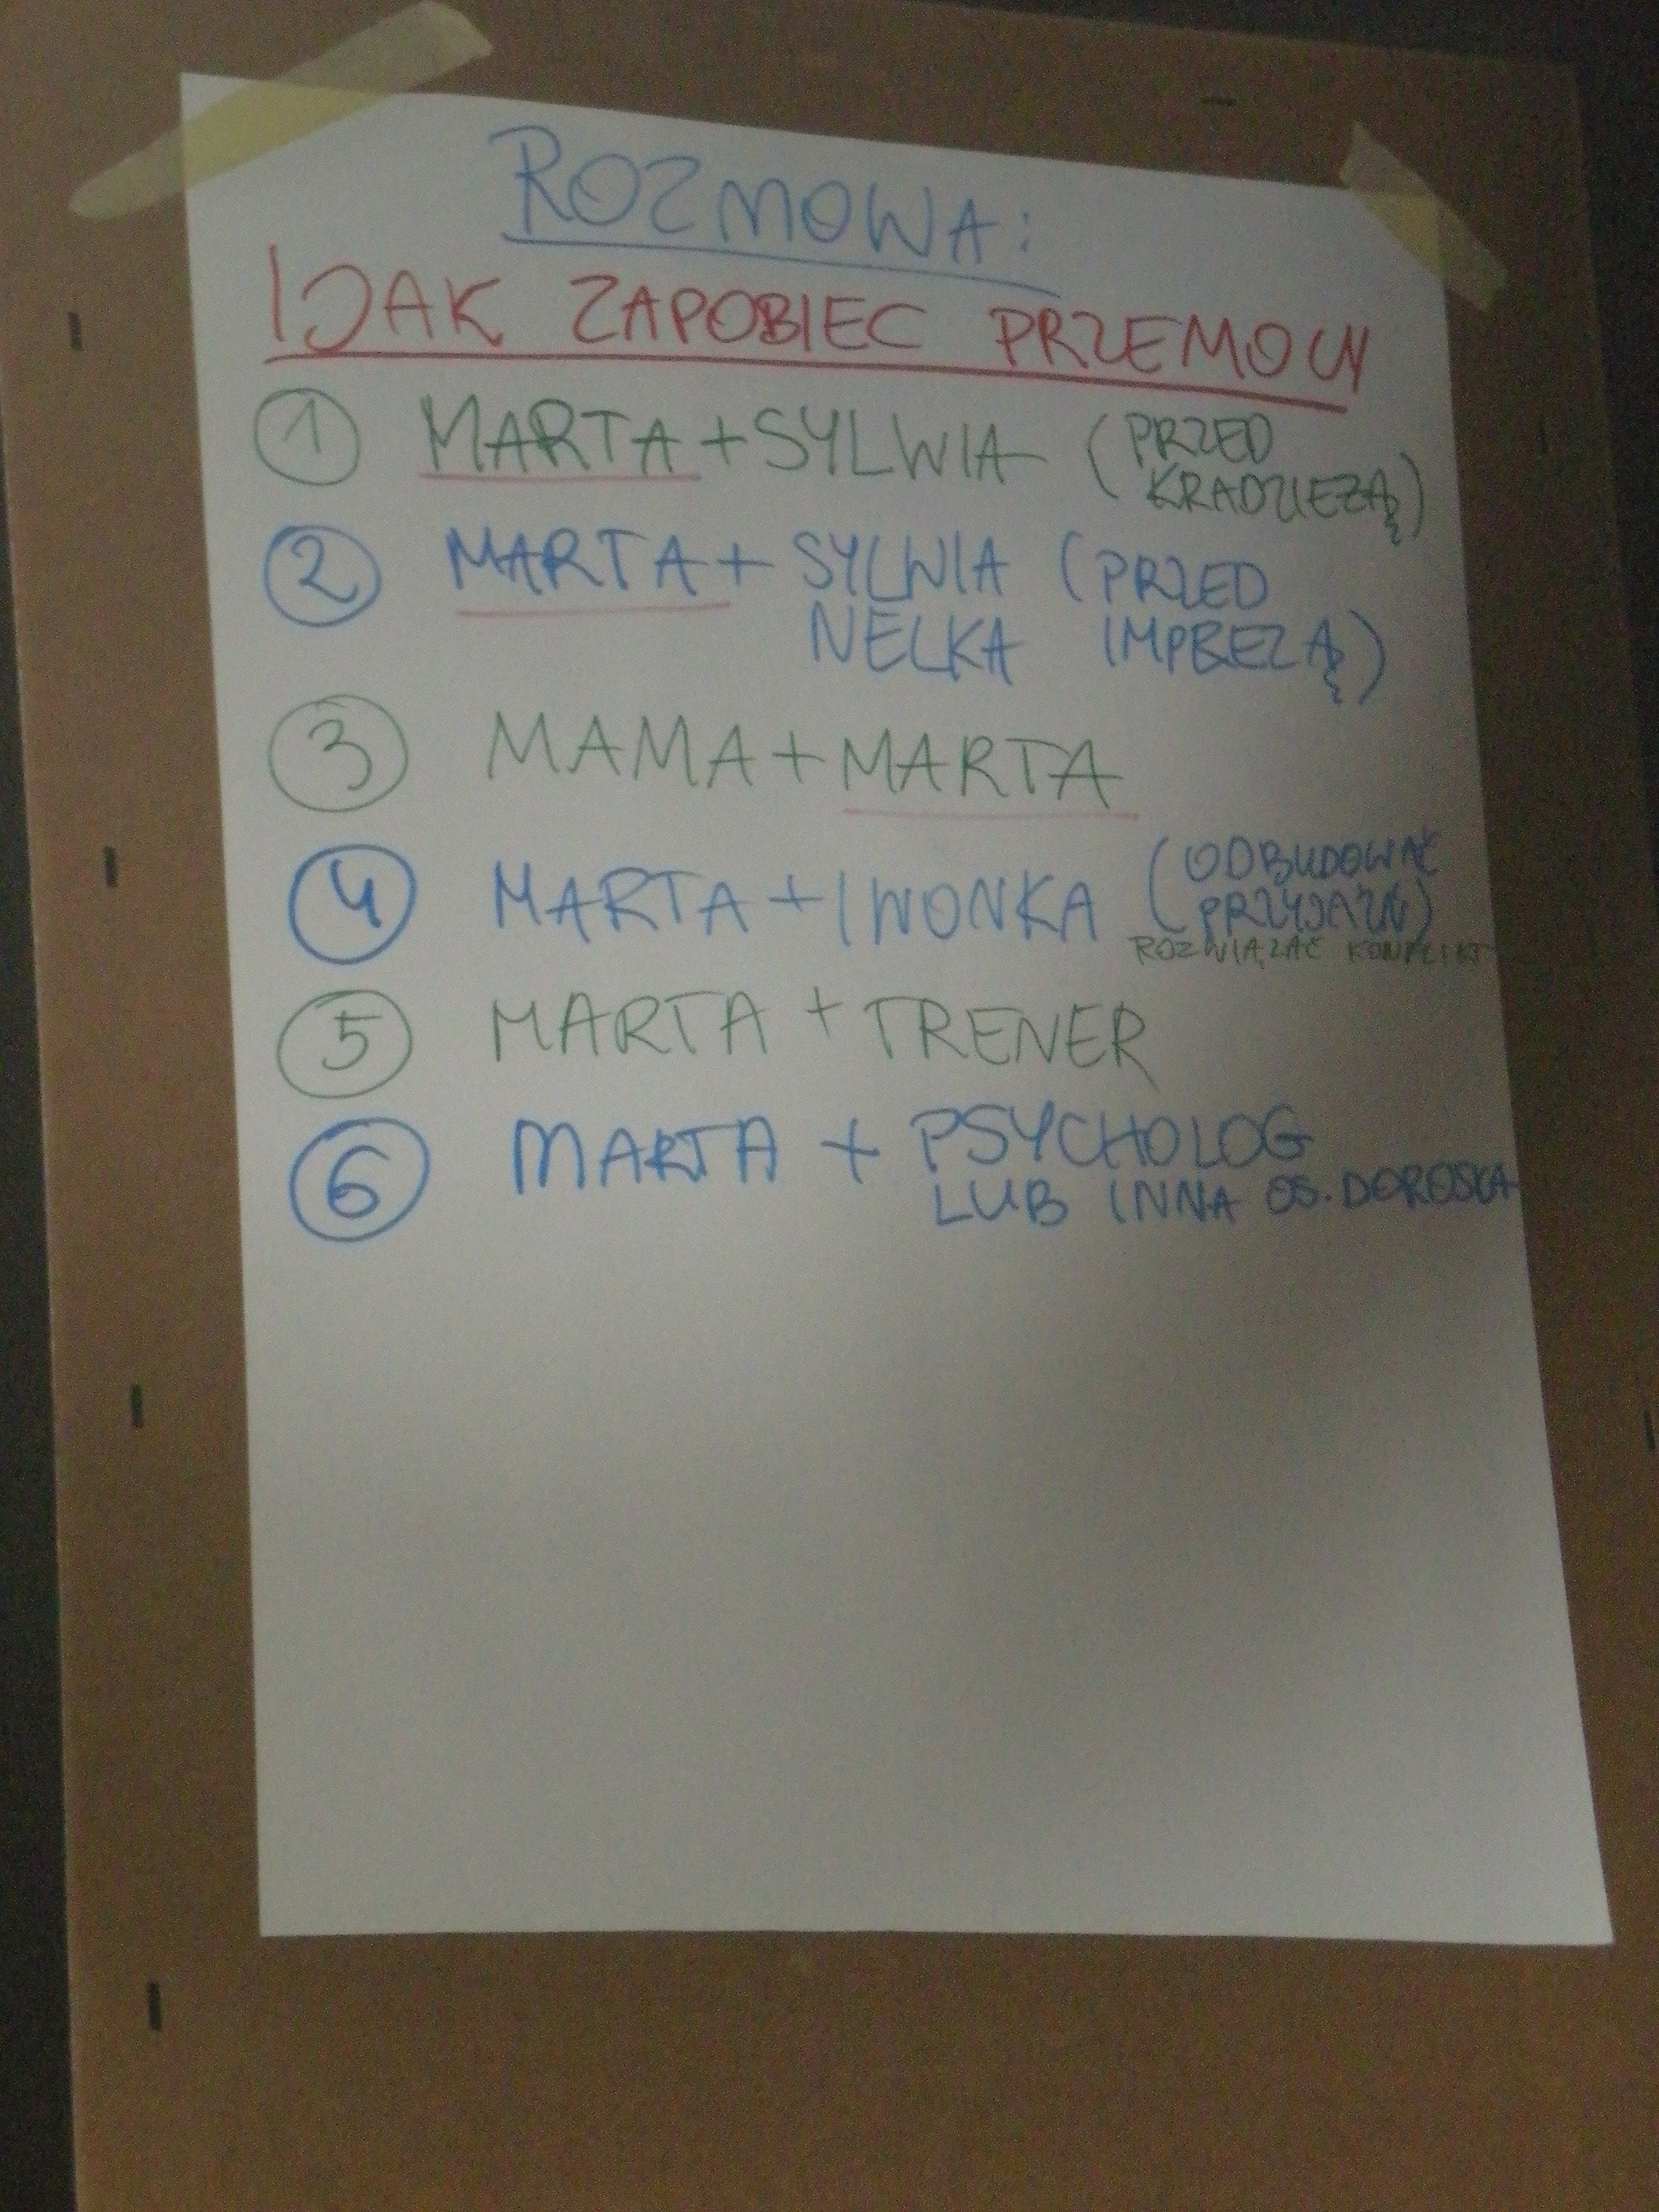 ROZMOWA:
JAK ZAPOBIEC PRZEMOCY
1 MARTA + SYLWIA (PRZED
KRADZIEŻĄ)
2 MARTA + SYLWIA (PRZED
NELKA IMPREZĄ)
3 MAMA + MARTA
4 MARTA + IWONKA (ODBUDOWAĆ
PRZYJAŹŃ)
ROZWIĄZAĆ KONFLIKT
5 MARTA + TRENER
6 MARTA + PSYCHOLOG
LUB INNA OS. DOROSŁA